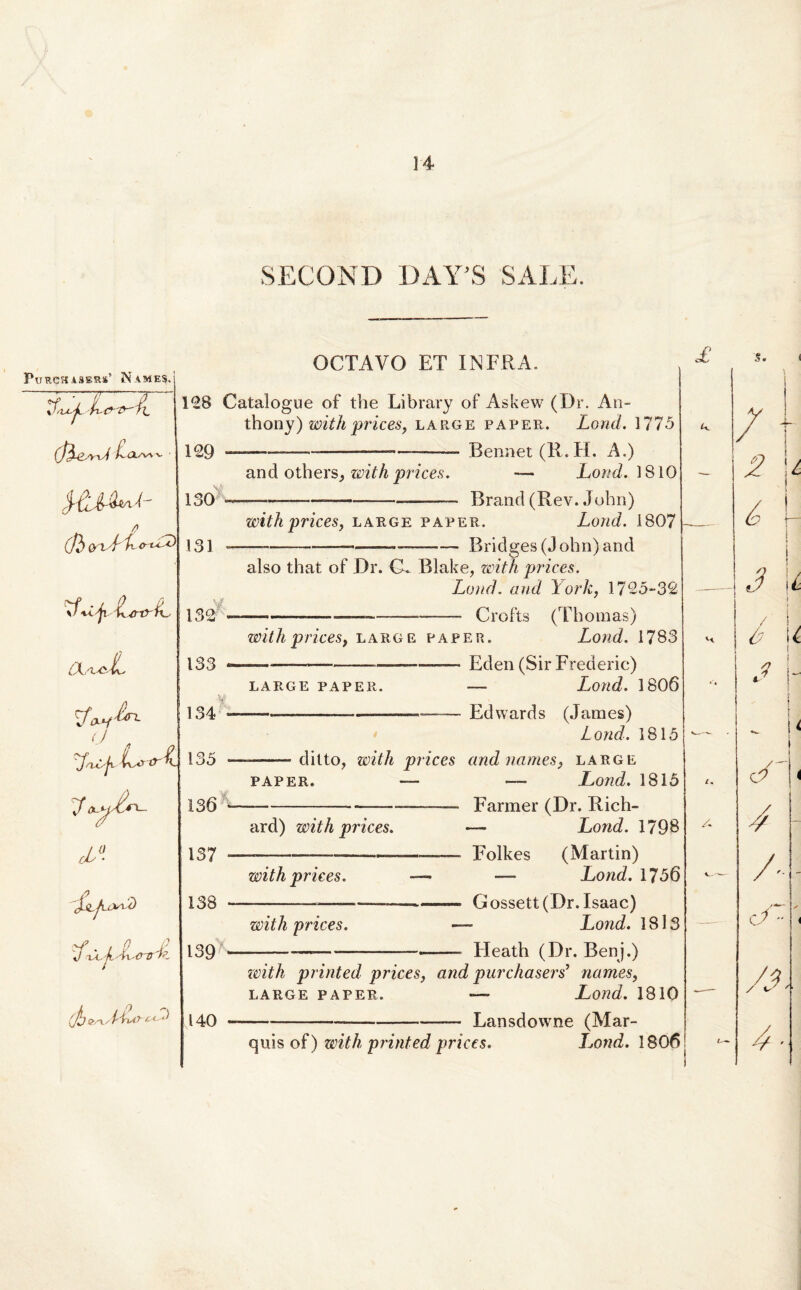 14
SECOND DAY'S SALE.
OCTAVO ET INFRA.
PURCHASERS' NAMES.
£ s.
128 Catalogue of the Library of Askew (Dr. An-
thony) with prices, LARGE PAPER. Lond. 1775
7
129 ——— Bennet (R. H. A.)
and others, with prices. — Lond. 1810
2
130 ——— Brand (Rev. John)
with prices, LARGE PAPER. Lond. 1807
6
131 ——— Bridges (John) and
also that of Dr. C. Blake, with prices.
Lond. and York, 1725-32
3
132 ——— Crofts (Thomas)
with prices, LARGE PAPER. Lond. 1783
6
133 ——— Eden (Sir Frederic)
LARGE PAPER. — Lond. 1806
3
134 ——— Edwards (James)
Lond. 1815
135 ——— ditto, with prices and names, LARGE
PAPER. — — Lond. 1815
5
136 ——— Farmer (Dr. Rich-
ard) with prices. — Lond. 1798
4
137 ——— Folkes (Martin)
with prices. — — Lond. 1756
1
138 ——— Gossett (Dr. Isaac)
with prices. — Lond. 1813
5
139 ——— Heath (Dr. Benj.)
with printed prices, and purchasers' names,
LARGE PAPER. — Lond. 1810
13
140 ——— Lansdowne (Mar-
quis of) with printed prices. Lond. 1806
4